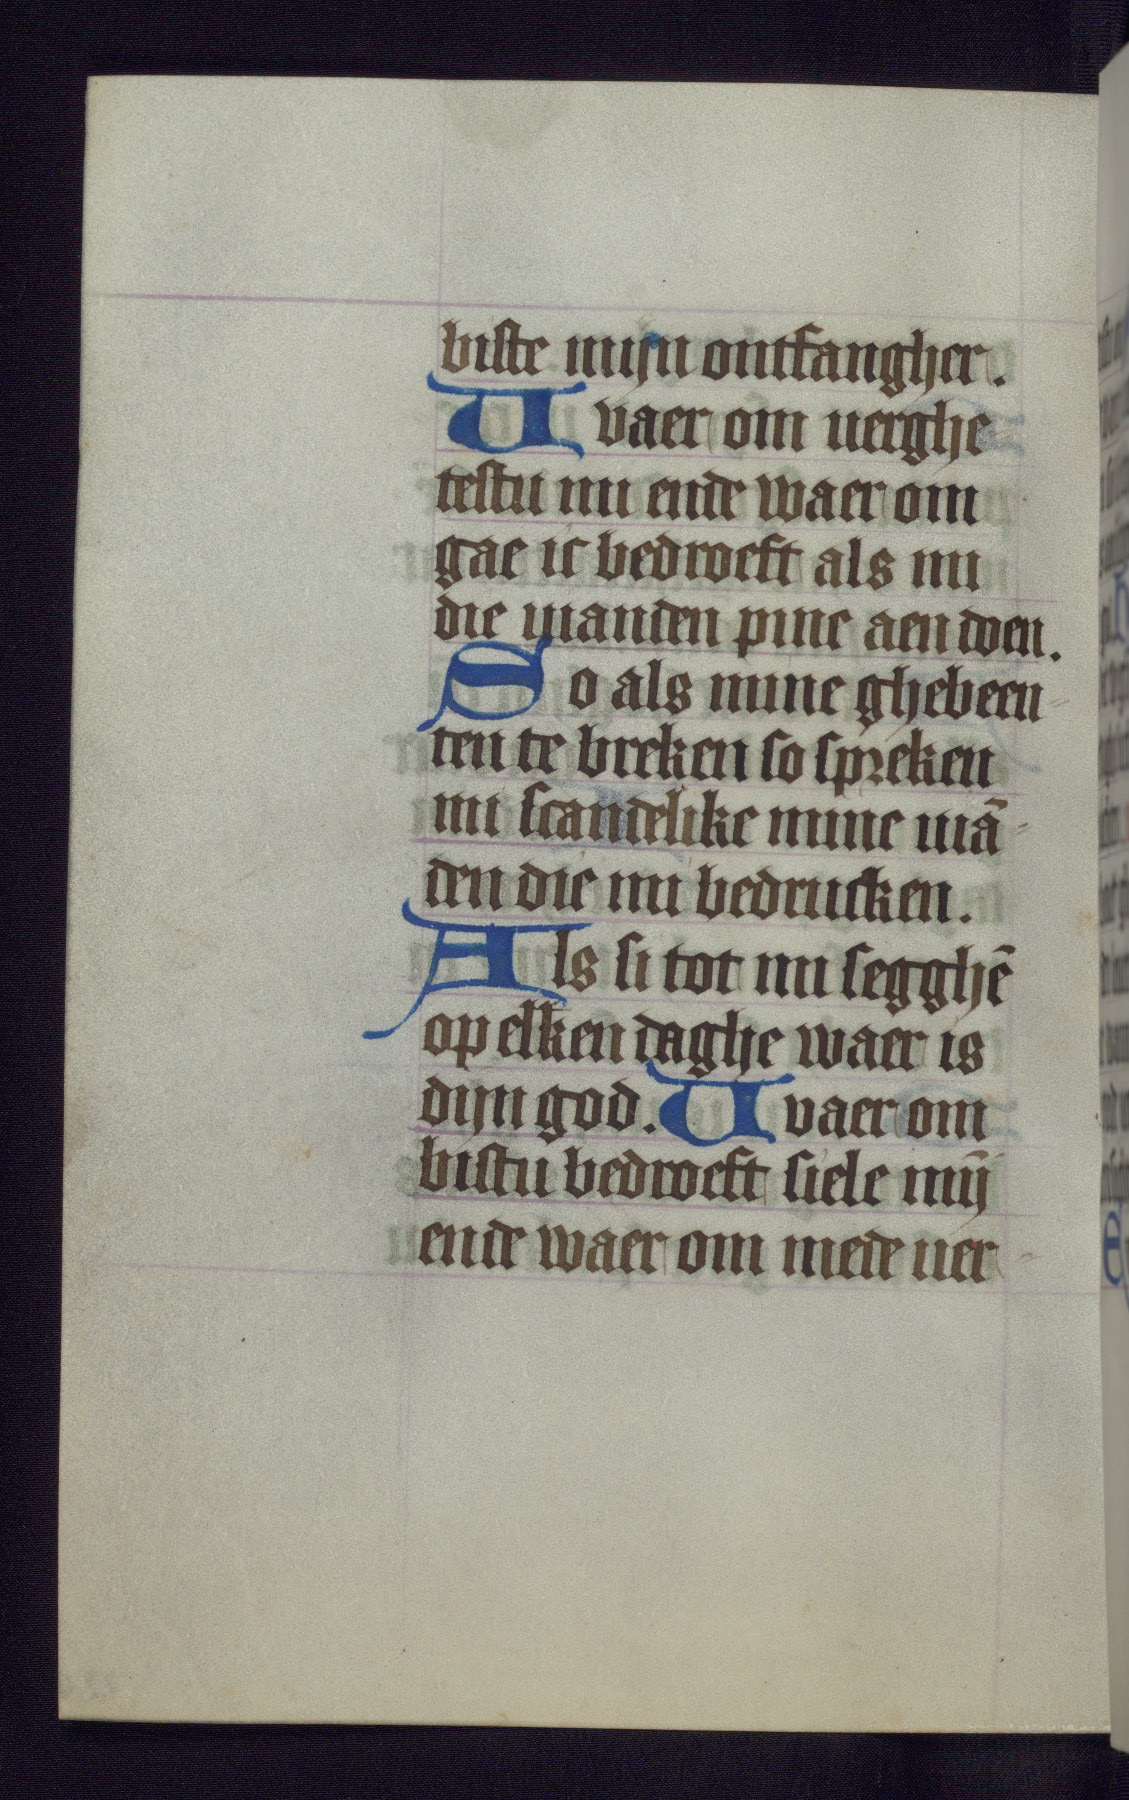 biste mijn ontfangher.
Uvaer om uerghe
testu mi ende waer om
gae ic bedroeft als mi
die uianden pine aen doen.
So als mine ghebeen-
ten te breken so spreken
mi scandelike mine uiā-
den die mi bedrucken.
Als si tot mi segghē
op elken daghe waer is
dijn god. Uvaer om
bistu bedroeft siele mij̄
ende waer om mede uer-